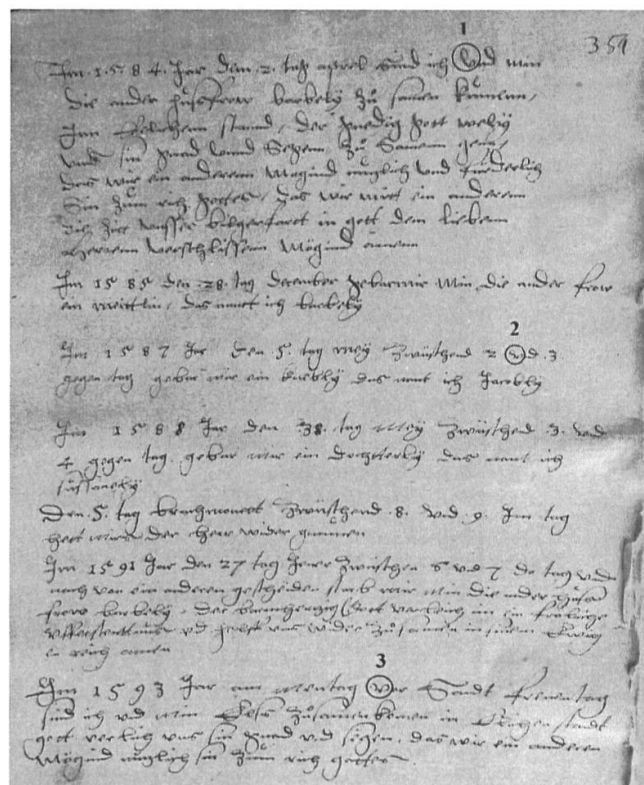 1
351
Im 1584. Jar den .2. tag aprel sind ich vnd min
die ander hussfrow barbely zů samen kumen,
Inn stannd, der gnedig gott welly
vns sin gnad vnnd Segenn zů Samenn genn,
das wir ein anderenn mögind nuzlich vnd fürderlich
Sin zum rich gottes, das wir mitt ein anderenn
bilgerfartt in gott dem liebenn
herrenn verschlissenn mögind amenn
Im 1585 den .28. tag december gebar mir min die ander frow
ein meittlin, das namt ich barbely
2
Im 1587 Jar den 5. tag mey zwüschend 2 vnd .3
gegen tag gebar mir ein knebly das namt ich Jacobly
Im 1588 Jar den tag mey zwüschend .3. vnd
4 gegen tag gebar mir ein döchterly das namt ich
süssanely
Den .5. tag brachmonett zwüschend .8. vnd .9. Im tag
hett mirs der herr wider gnumen
Im 1591 Jar den 27 tag zwüschen 6 vnd 7 der tag vnd
nach von ein anderen gescheiden starb mir min die ander husfrow
frow barbely, der barmhertzig Gott verlich im ein fröliche
vfferstenttnus vnd helff vns wider zů samen in sinem Ewigen
rich amen
3
Im 1593 Jar am mentag vor Sandt frenentag
sind ich vnd min Elsy zusamenkomen in Elichen standt
gott verlich vns sin gnad vnd segen, das wir ein anderen
mögind nuzlich sin zum rich gottes